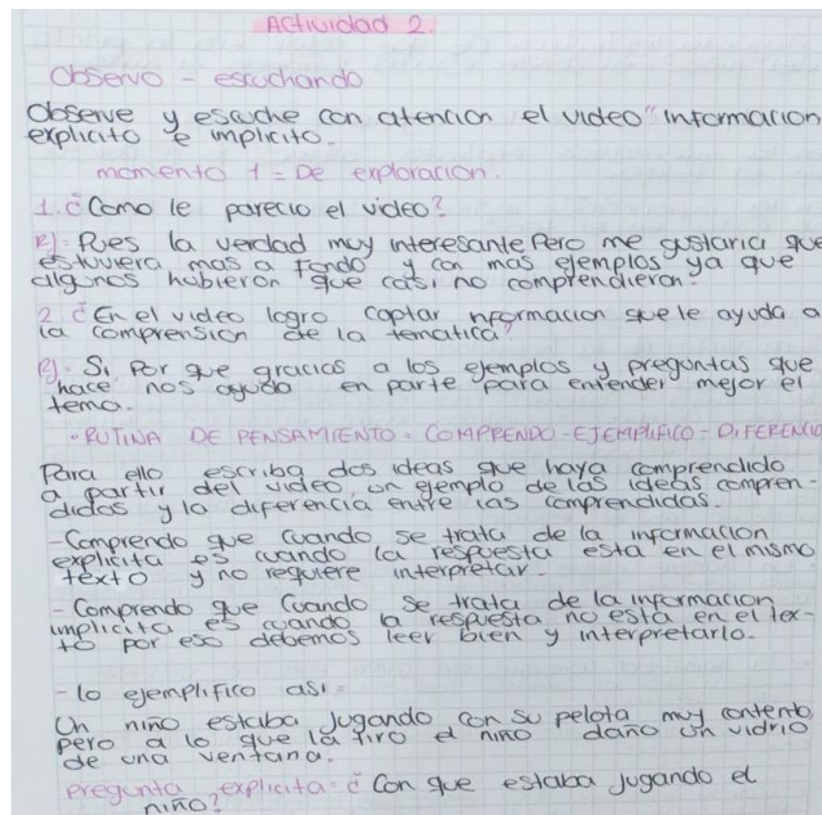 Actividad 2.
Observo - escuchando
Observe y escuche con atencion el video "informacion
explicito e implicito.
momento 1 = De exploracion.
1. ¿Como le parecio el video?
R)= Pues la verdad muy interesante Pero me gustaria que
estuviera mas a Fondo y con mas ejemplos ya que
algunos hubieron que casi no comprendieron.
2. ¿En el video logro captar nformacion que le ayuda a
la comprension de la tematica?
R)= Si, Por que gracias a los ejemplos y preguntas que
hace nos ayuda en parte para entender mejor el
tema.
• RUTINA DE PENSAMIENTO = COMPRENDO - EJEMPLIFICO - DIFERENCIO
Para ello escriba dos ideas que haya comprendido
a partir del video, un ejemplo de las ideas compren-
didas y la diferencia entre las comprendidas.
- Comprendo que cuando se trata de la informacion
explicita es cuando la respuesta esta en el mismo
texto y no requiere interpretar.
- Comprendo que cuando se trata de la informacion
implicita es cuando la respuesta no esta en el tex-
to por eso debemos leer bien y interpretarlo.
- lo ejemplifico asi =
Un niño estaba jugando con su pelota muy contento
pero a lo que la tiro el niño daño un vidrio
de una ventana.
Pregunta explicita = ¿Con que estaba jugando el
niño?